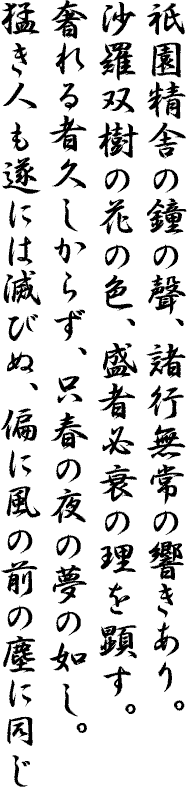 祇園精舎の鐘の聲、諸行無常の響きあり。
沙羅双樹の花の色、盛者必衰の理を顕す。
奢れる者久しからず、只春の夜の夢の如し。
猛き人も遂には滅びぬ、偏に風の前の塵に同じ